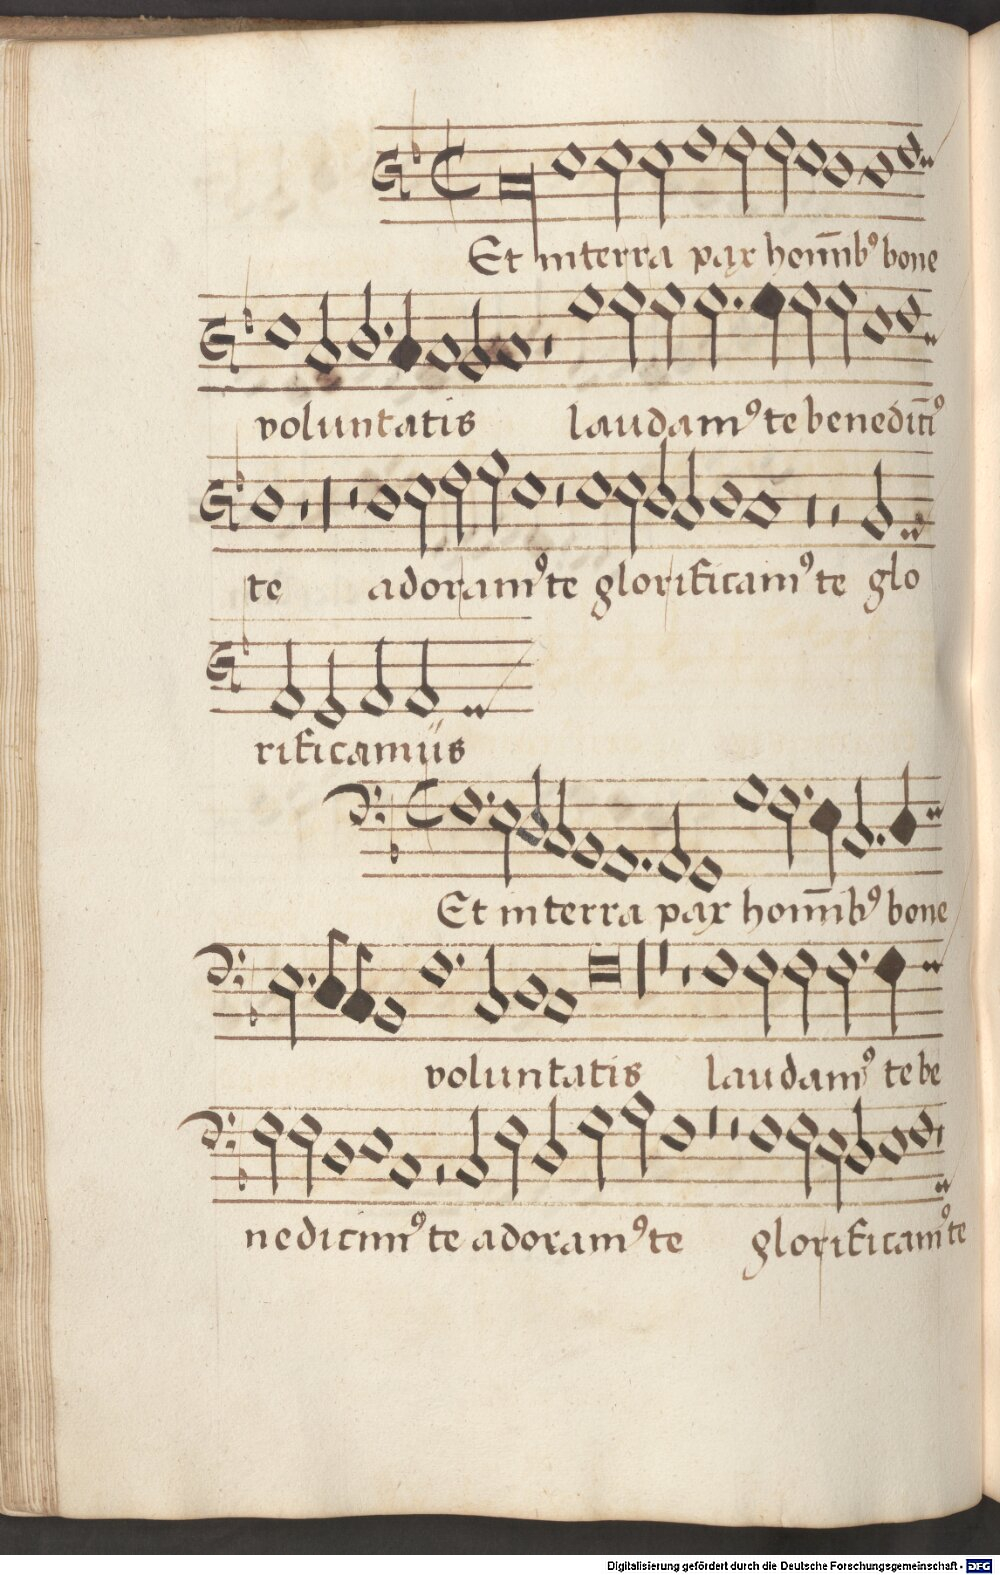 Et in terra pax hom̄ibꝰ bone
voluntatis laudamꝰ te benedicīꝰ
te adoramꝰ te glorificamꝰ te glo
rificamus
Et in terra pax hom̄ibꝰ bone
voluntatis laudamꝰ te be
nedicimꝰ te adoramꝰ te glorificamꝰ te
Digitalisierung gefördert durch die Deutsche Forschungsgemeinschaft - DFG